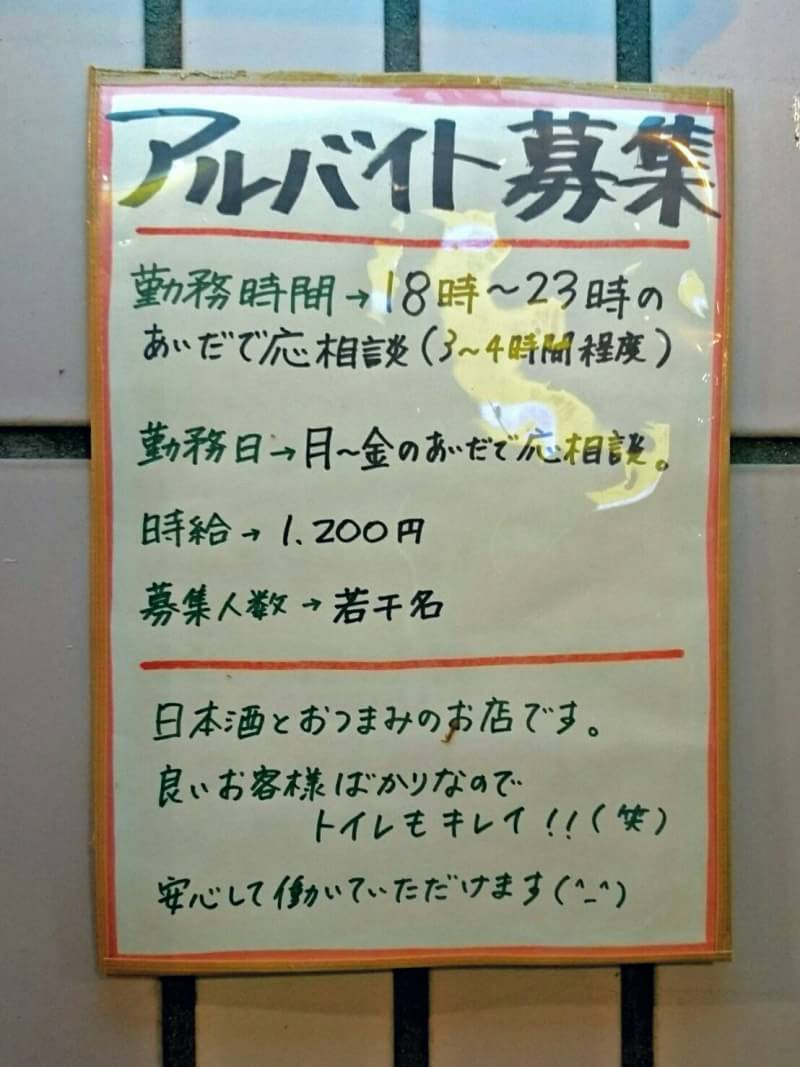 アルバイト募集
勤務時間→18時～23時の
あいだで応相談(3～4時間程度)
勤務日→月～金のあいだで応相談。
時給→1.200円
募集人数→若干名
日本酒とおつまみのお店です。
良いお客様ばかりなので
トイレもキレイ!!(笑)
安心して働いていただけます(^_^)